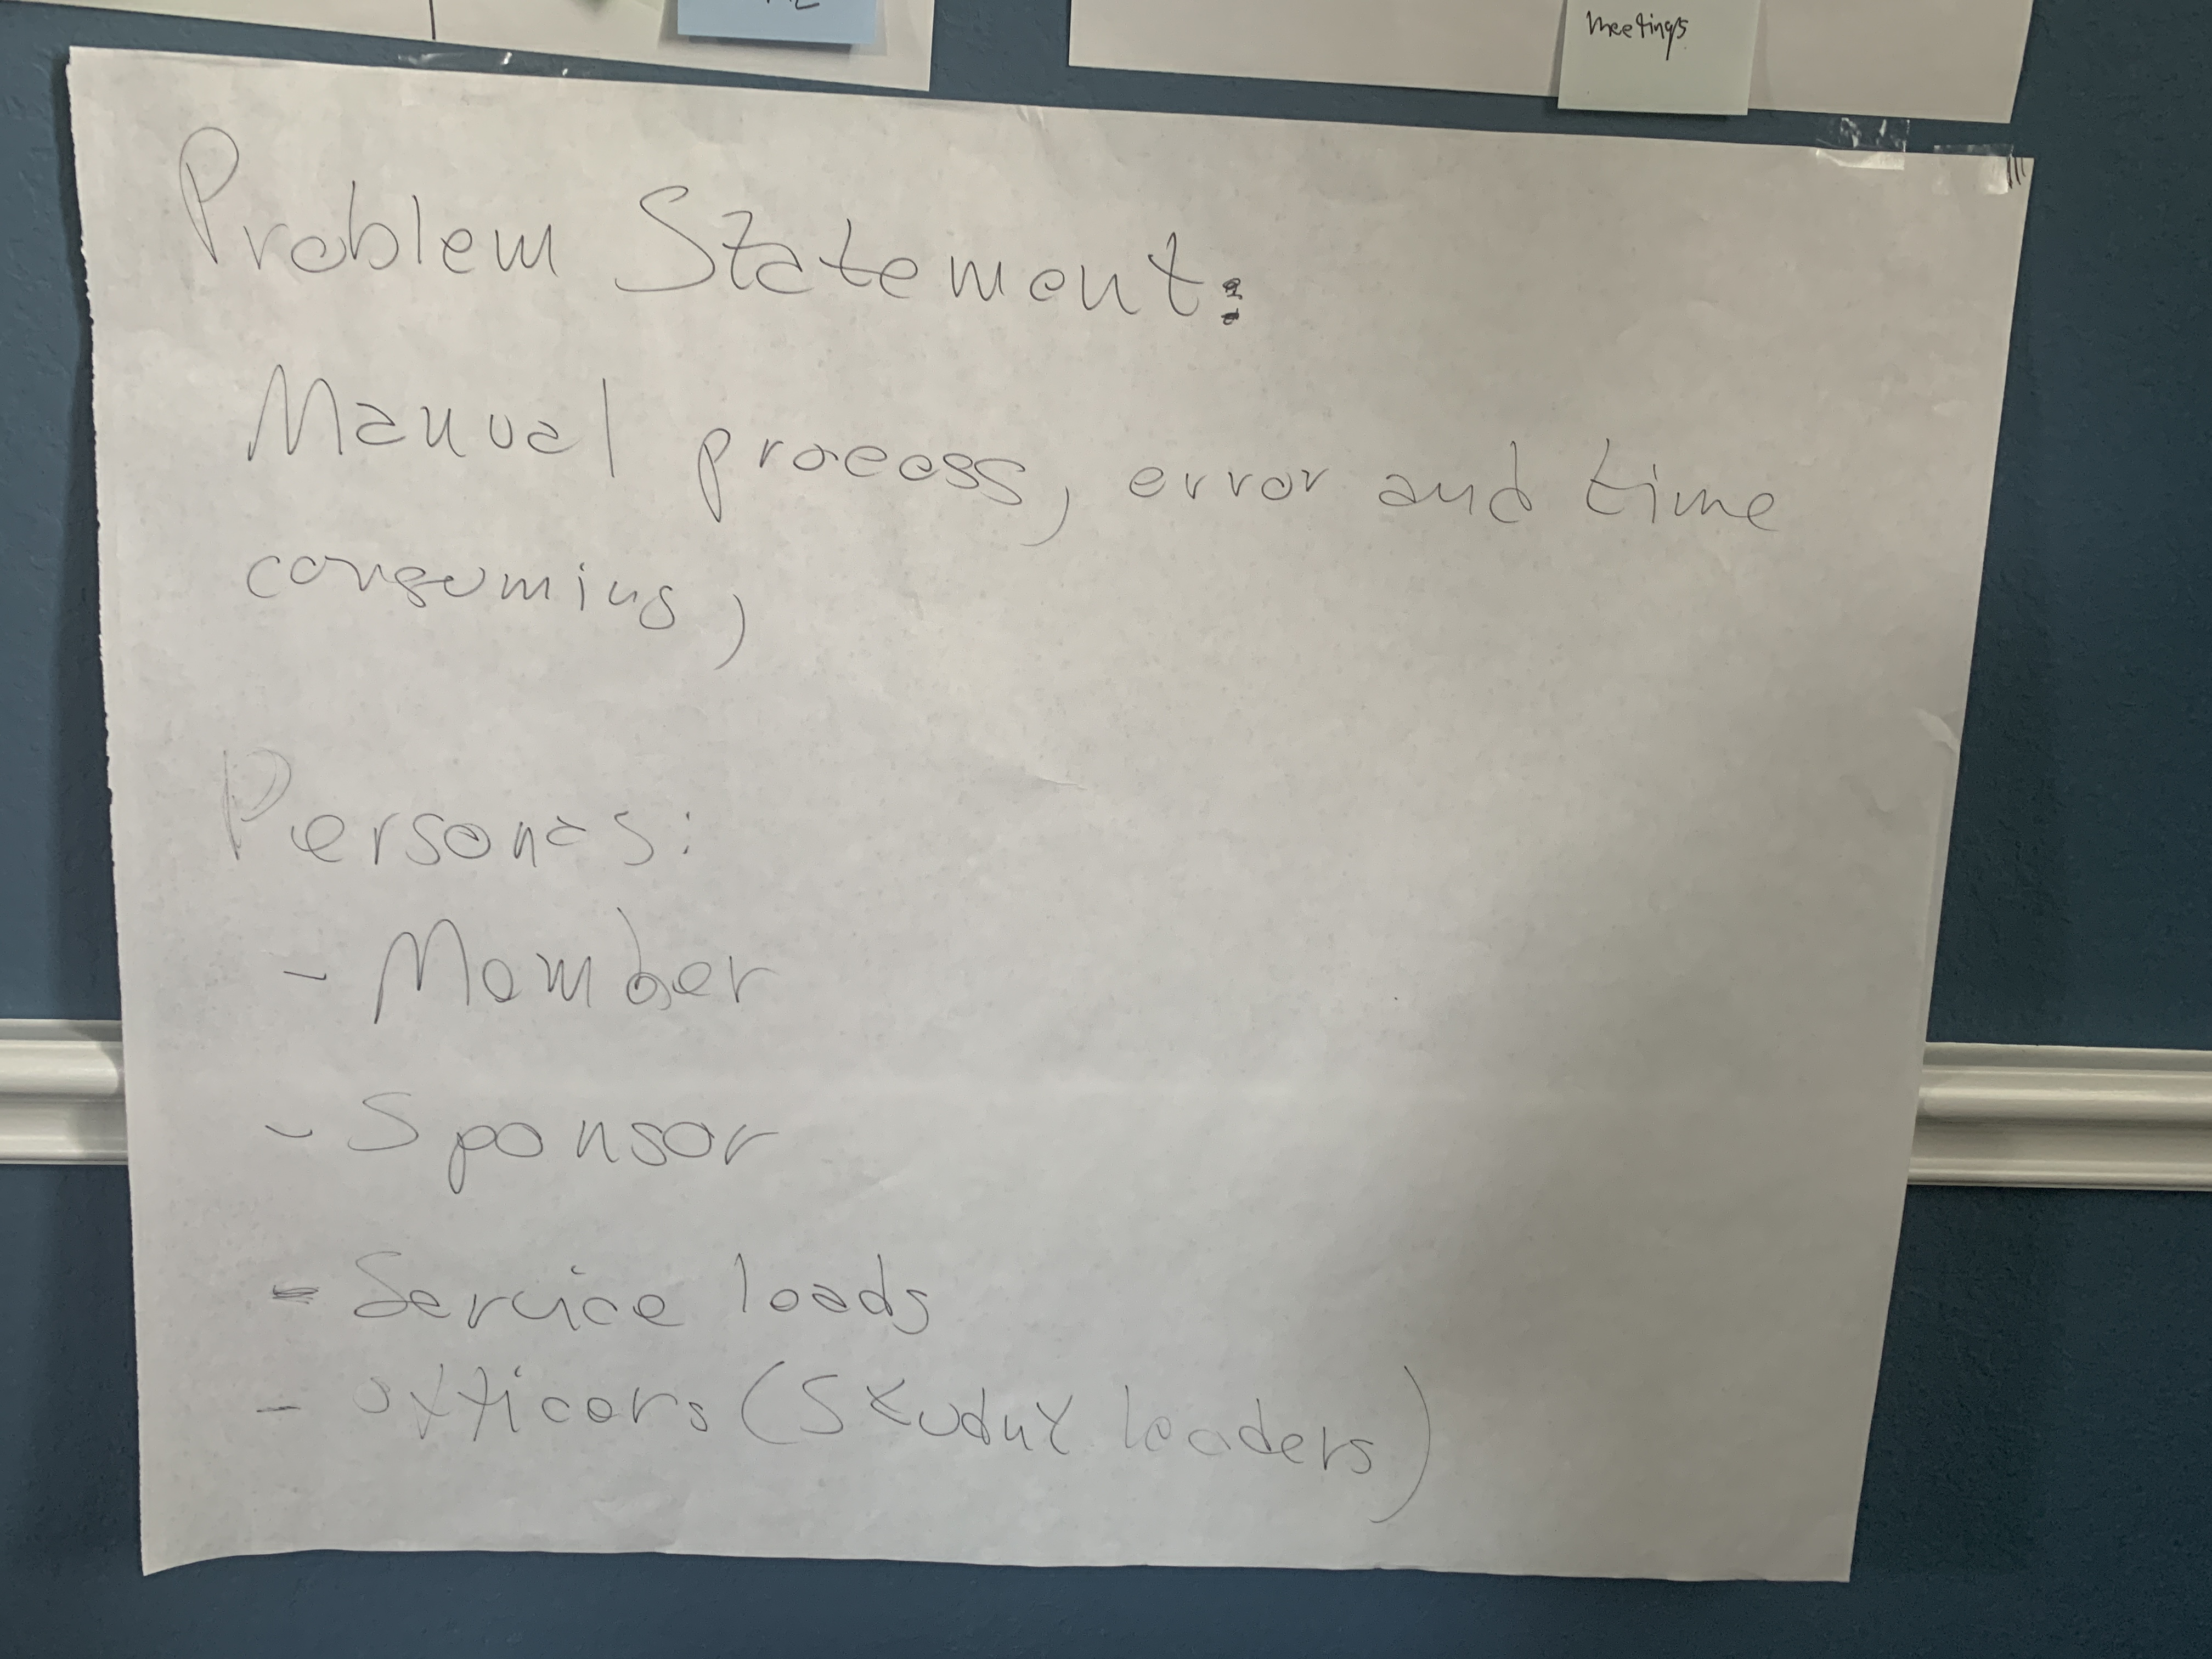 meetings
Problem Statement:
Manual process, error and time
consuming,
Personas:
- Member
- Sponsor
- Service leads
- Officers (Studnt leaders)